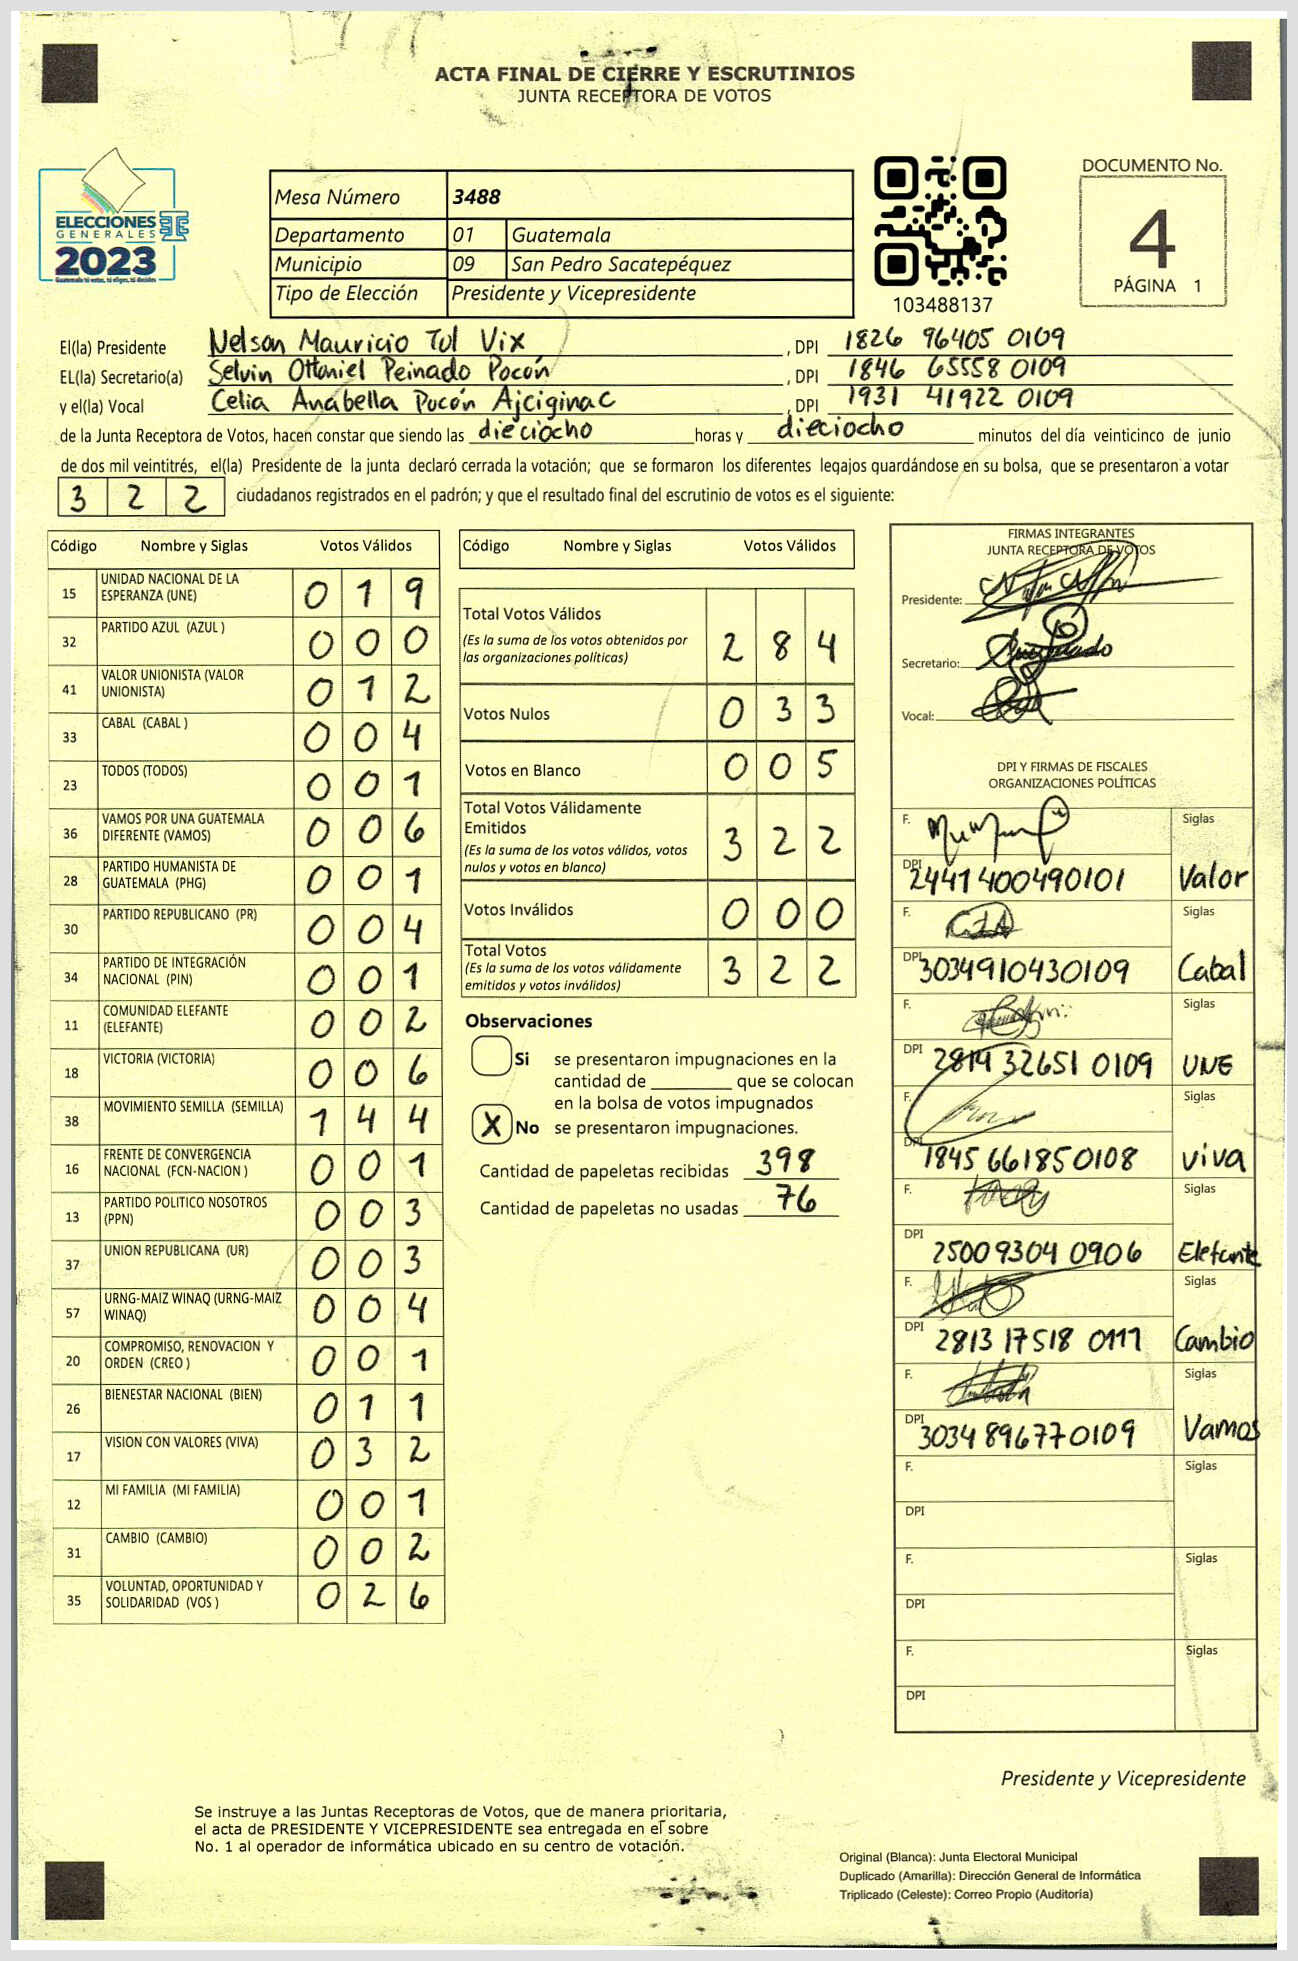 ACTA FINAL DE CIERRE Y ESCRUTINIOS
JUNTA RECEPTORA DE VOTOS
ELECCIONES
GENERALES
2023
Guatemala tú votas, tú eliges, tú decides
Mesa Número 3488
Departamento 01 Guatemala
Municipio 09 San Pedro Sacatepéquez
Tipo de Elección Presidente y Vicepresidente
103488137
DOCUMENTO No.
4
PÁGINA 1
El(la) Presidente Nelson Mauricio Tol Vix , DPI 1826 96405 0109
EL(la) Secretario(a) Selvin Ottoniel Peinado Pocón , DPI 1846 65558 0109
y el(la) Vocal Celia Anabella Pocón Ajciginac , DPI 1931 41922 0109
de la Junta Receptora de Votos, hacen constar que siendo las dieciocho horas y dieciocho minutos del día veinticinco de junio
de dos mil veintitrés, el(la) Presidente de la junta declaró cerrada la votación; que se formaron los diferentes legajos guardándose en su bolsa, que se presentaron a votar
3 2 2 ciudadanos registrados en el padrón; y que el resultado final del escrutinio de votos es el siguiente:
Código Nombre y Siglas Votos Válidos
15 UNIDAD NACIONAL DE LA ESPERANZA (UNE) 0 1 9
32 PARTIDO AZUL (AZUL ) 0 0 0
41 VALOR UNIONISTA (VALOR UNIONISTA) 0 1 2
33 CABAL (CABAL ) 0 0 4
23 TODOS (TODOS) 0 0 1
36 VAMOS POR UNA GUATEMALA DIFERENTE (VAMOS) 0 0 6
28 PARTIDO HUMANISTA DE GUATEMALA (PHG) 0 0 1
30 PARTIDO REPUBLICANO (PR) 0 0 4
34 PARTIDO DE INTEGRACIÓN NACIONAL (PIN) 0 0 1
11 COMUNIDAD ELEFANTE (ELEFANTE) 0 0 2
18 VICTORIA (VICTORIA) 0 0 6
38 MOVIMIENTO SEMILLA (SEMILLA) 1 4 4
16 FRENTE DE CONVERGENCIA NACIONAL (FCN-NACION ) 0 0 1
13 PARTIDO POLITICO NOSOTROS (PPN) 0 0 3
37 UNION REPUBLICANA (UR) 0 0 3
57 URNG-MAIZ WINAQ (URNG-MAIZ WINAQ) 0 0 4
20 COMPROMISO, RENOVACION Y ORDEN (CREO ) 0 0 1
26 BIENESTAR NACIONAL (BIEN) 0 1 1
17 VISION CON VALORES (VIVA) 0 3 2
12 MI FAMILIA (MI FAMILIA) 0 0 1
31 CAMBIO (CAMBIO) 0 0 2
35 VOLUNTAD, OPORTUNIDAD Y SOLIDARIDAD (VOS ) 0 2 6
Código Nombre y Siglas Votos Válidos
Total Votos Válidos
(Es la suma de los votos obtenidos por
las organizaciones políticas) 2 8 4
Votos Nulos 0 3 3
Votos en Blanco 0 0 5
Total Votos Válidamente
Emitidos
(Es la suma de los votos válidos, votos
nulos y votos en blanco) 3 2 2
Votos Inválidos 0 0 0
Total Votos
(Es la suma de los votos válidamente
emitidos y votos inválidos) 3 2 2
Observaciones
Si se presentaron impugnaciones en la
cantidad de ________ que se colocan
en la bolsa de votos impugnados
X No se presentaron impugnaciones.
Cantidad de papeletas recibidas 398
Cantidad de papeletas no usadas 76
FIRMAS INTEGRANTES
JUNTA RECEPTORA DE VOTOS
Presidente:
Secretario:
Vocal:
DPI Y FIRMAS DE FISCALES
ORGANIZACIONES POLÍTICAS
F. Siglas
DPI 2441400490101 Valor
F. Siglas
DPI 3034910430109 Cabal
F. Siglas
DPI 2819 32651 0109 UNE
F. Siglas
DPI 1845 661850108 viva
F. Siglas
DPI 25009304 0906 Elefante
F. Siglas
DPI 2813 17518 0111 Cambio
F. Siglas
DPI 3034 896770109 Vamos
F. Siglas
DPI
F. Siglas
DPI
F. Siglas
DPI
Presidente y Vicepresidente
Se instruye a las Juntas Receptoras de Votos, que de manera prioritaria,
el acta de PRESIDENTE Y VICEPRESIDENTE sea entregada en el sobre
No. 1 al operador de informática ubicado en su centro de votación.
Original (Blanca): Junta Electoral Municipal
Duplicado (Amarilla): Dirección General de Informática
Triplicado (Celeste): Correo Propio (Auditoría)